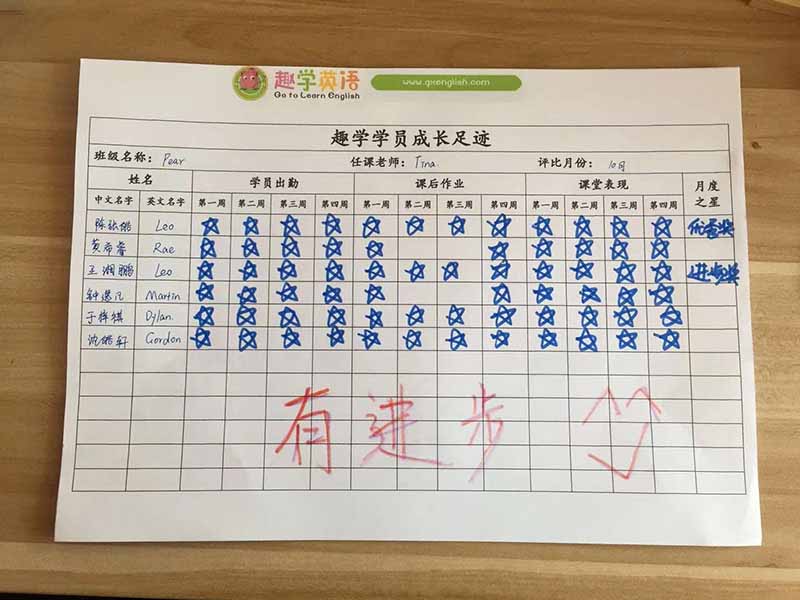 趣学英语
Go to Learn English
www.qxenglish.com
趣学学员成长足迹
班级名称: Pear 任课老师: Tina 评比月份: 10月
姓名 学员出勤 课后作业 课堂表现 月度之星
中文名字 英文名字 第一周 第二周 第三周 第四周 第一周 第二周 第三周 第四周 第一周 第二周 第三周 第四周
Leo
Rae
王湘鹏 Leo 进步奖
钟逸凡 Martin
于梓祺 Dylan
沈皓轩 Gordon
有进步